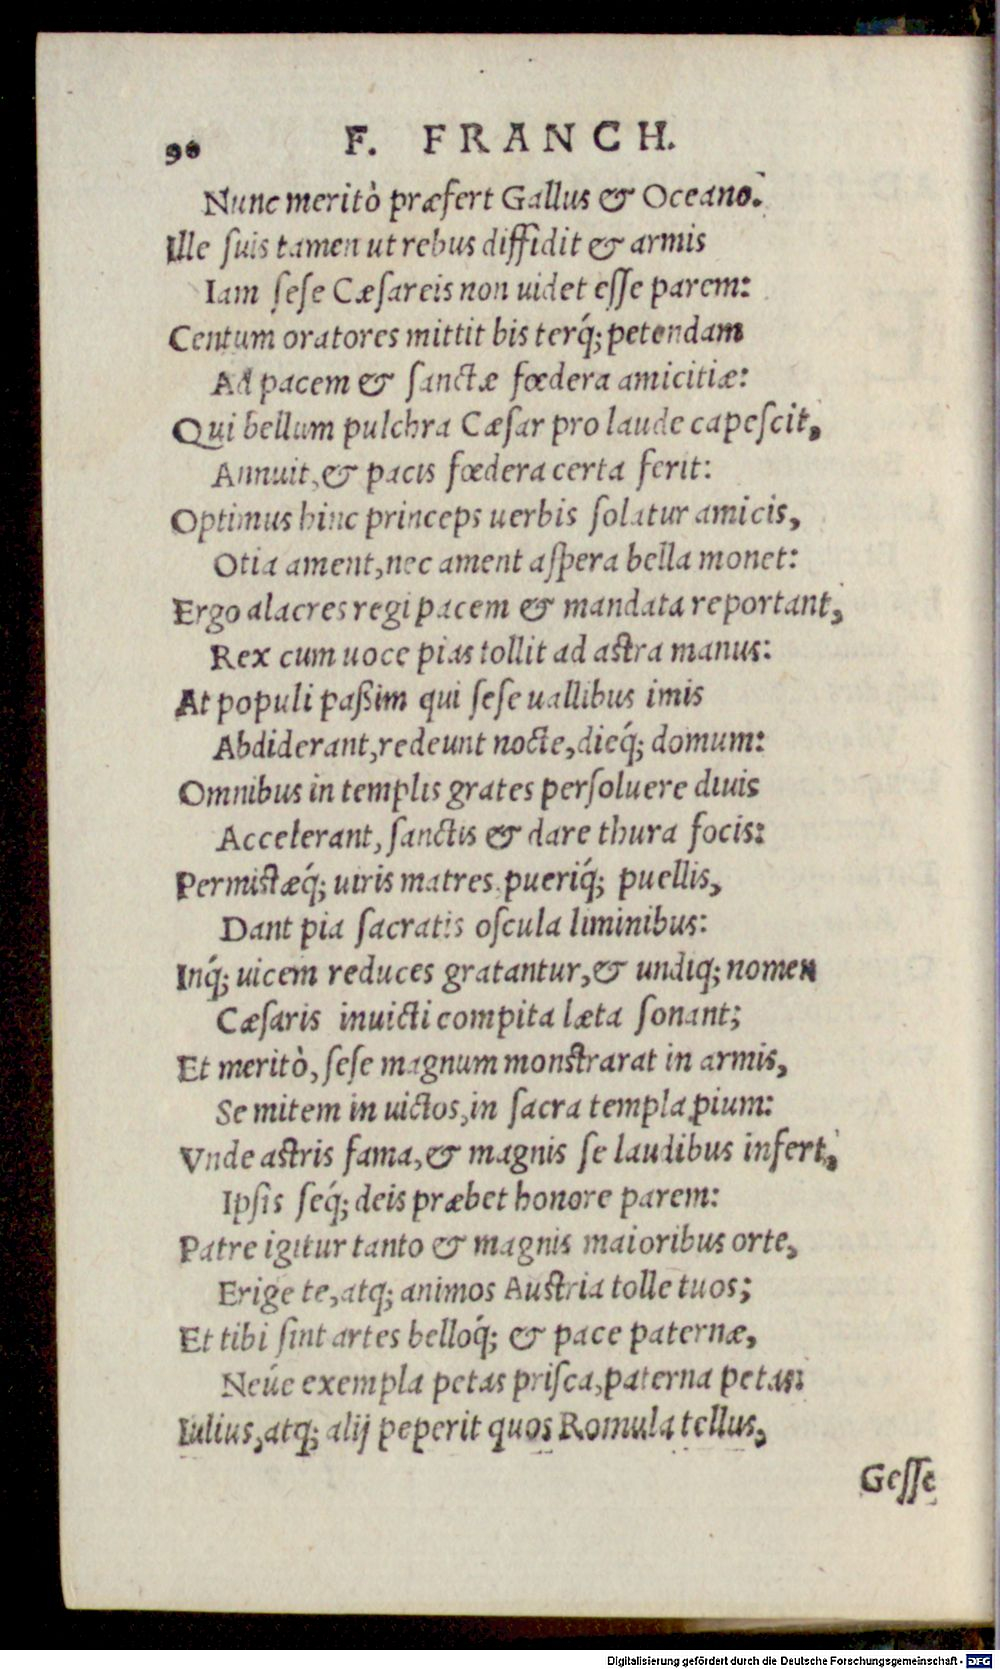 90 F. FRANCH.
Nunc meritò præfert Gallus & Oceano.
Ille ſuis tamen ut rebus diffidit & armis
Iam ſeſe Cæſareis non uidet eſſe parem:
Centum oratores mittit bis terq́; petendam
Ad pacem & ſanctæ fœdera amicitiæ:
Qui bellum pulchra Cæſar pro laude capeſcit,
Annuit, & pacis fœdera certa ferit:
Optimus hinc princeps uerbis ſolatur amicis,
Otia ament, nec ament aſpera bella monet:
Ergo alacres regi pacem & mandata reportant,
Rex cum uoce pias tollit ad astra manus:
At populi paßim qui ſeſe uallibus imis
Abdiderant, redeunt nocte, dieq́; domum:
Omnibus in templis grates perſoluere diuis
Accelerant, ſanctis & dare thura focis:
Permistæq́; uiris matres pueriq́; puellis,
Dant pia ſacratis oſcula liminibus:
Inq́; uicem reduces gratantur, & undiq; nomen
Cæſaris inuicti compita læta ſonant;
Et meritò, ſeſe magnum monstrarat in armis,
Se mitem in uictos, in ſacra templa pium:
Vnde astris fama, & magnis ſe laudibus infert,
Ipſis ſeq́; deis præbet honore parem:
Patre igitur tanto & magnis maioribus orte,
Erige te, atq; animos Austria tolle tuos;
Et tibi ſint artes belloq́; & pace paternæ,
Neúe exempla petas priſca, paterna petas:
Iulius, atq; alij peperit quos Romula tellus,
Geſſe
Digitalisierung gefördert durch die Deutsche Forschungsgemeinschaft - DFG